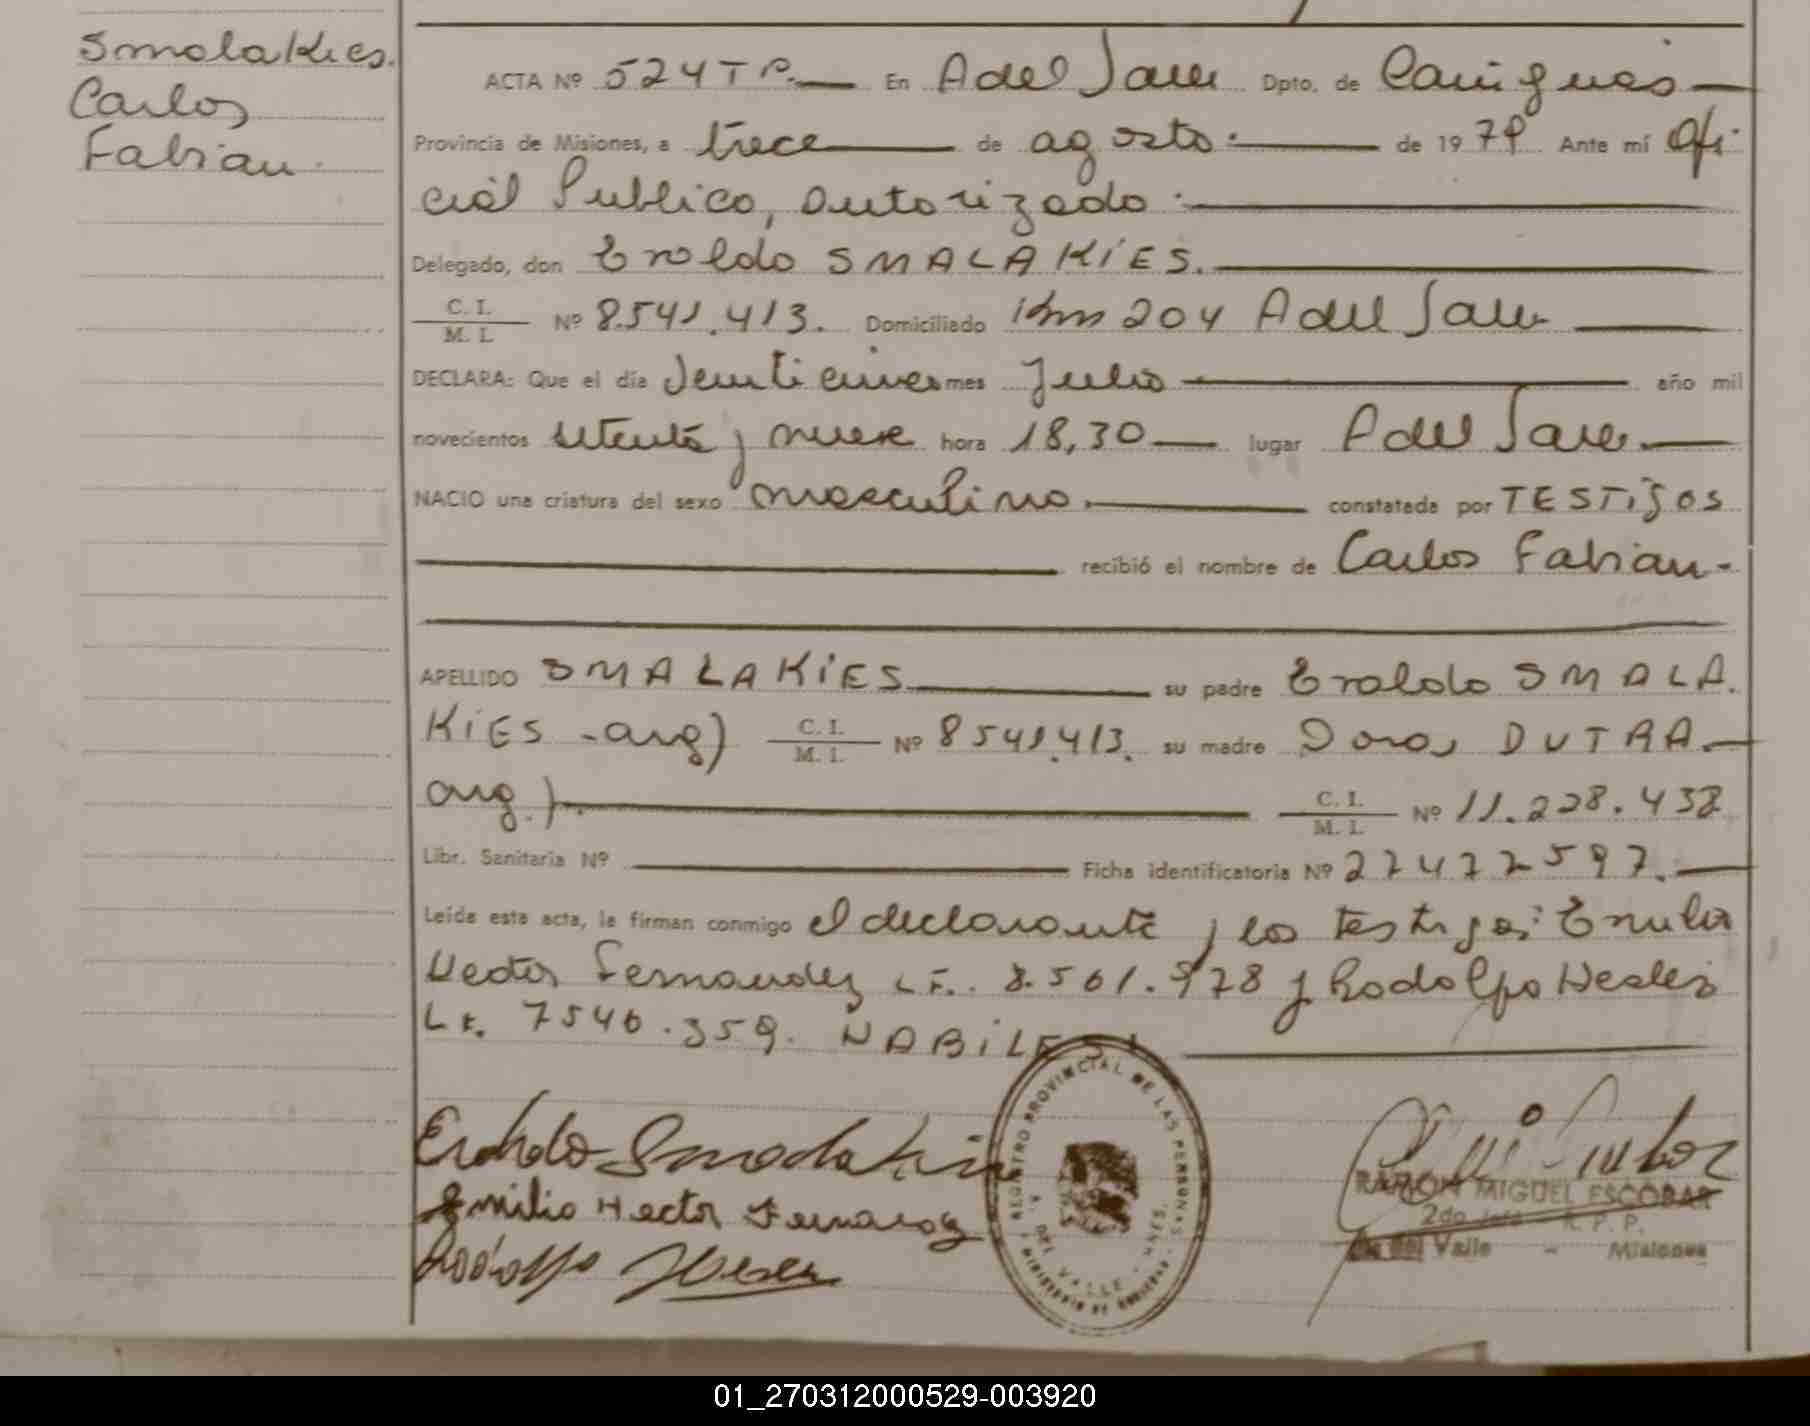 Smolakies.
Carlos
Fabian.
ACTA Nº 524 T P. En A del Valle Dpto. de Cainguas
Provincia de Misiones, a trece de agosto de 1979 Ante mí Ofi-
cial Publico, autorizado
Delegado, don Eroldo SMALAKIES.
C. I. / M. I. Nº 8.541.413. Domiciliado Km 204 A del Valle
DECLARA: Que el día Veinticinco mes Julio año mil
novecientos setenta y nueve hora 18,30 lugar A del Valle
NACIO una criatura del sexo masculino. constatada por TESTIGOS
recibió el nombre de Carlos Fabian-
APELLIDO SMALAKIES su padre Eroldo SMALA.
KIES -arg) C. I. / M. I. Nº 8541.413. su madre DUTRA
arg.) C. I. / M. I. Nº 11.228.438
Libr. Sanitaria Nº Ficha identificatoria Nº 27477597.
Leída esta acta, la firman conmigo el declarante y los testigos: Emilio
Hector Fernandez L E. 8.561.978 y Rodolfo
L E. 7546.359. HABILES
Eroldo Smolakies
Emilio Hector Fernandez
Rodolfo
REGISTRO PROVINCIAL DE LAS PERSONAS
A. DEL VALLE - MNES.
MINISTERIO DE GOBIERNO
RAMON MIGUEL ESCOBAR
2do Jefe R. P. P.
del Valle - Misiones
01_270312000529-003920